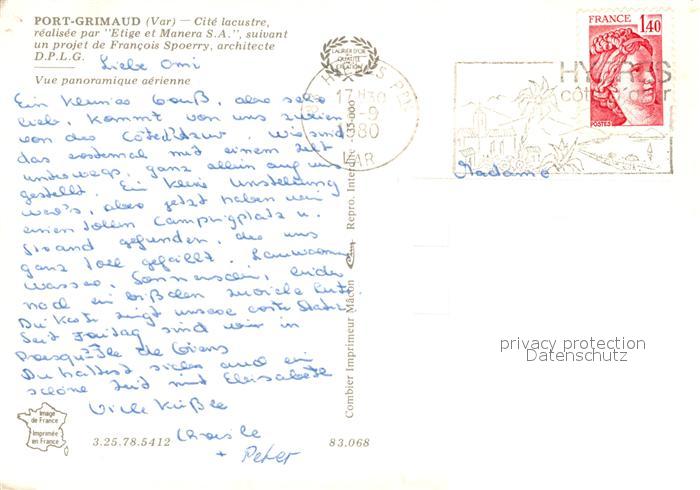 PORT-GRIMAUD (Var) — Cité lacustre,
réalisée par "Etige et Manera S.A.", suivant
un projet de François Spoerry, architecte
D.P.L.G.
Vue panoramique aérienne
Liebe Omi
Ein kleiner Gruß, aber sehr
lieb, kommt von uns zweien
von der Côte d'Azur. Wir sind
das erstemal mit einem Zelt
unterwegs, ganz allein auf uns
gestellt. Ein kleine Umstellung
war's, aber jetzt haben wir
einen tollen Campingplatz u.
Strand gefunden, der uns
ganz toll gefällt. Lauwarmes
Wasser, Sonnenschein, leider
noch ein bißchen zuviele Leute.
Die Karte zeigt unsere erste Station.
Seit Freitag sind wir in
Presqu'île de Giens
Du hattest sicher auch ein
schöne Zeit mit Elisabeth
Viele Küßle
+ Peter
Image de France
Imprimée en France
3.25.78.5412
83.068
Combier Imprimeur Mâcon
Repro. Interdite
LAURIER D'OR
QUALITÉ
CRÉATION
HYERES PPL
17H30
-9
1980
VAR
HYERES
côte d'azur
FRANCE
1,40
POSTES
Madame
privacy protection
Datenschutz